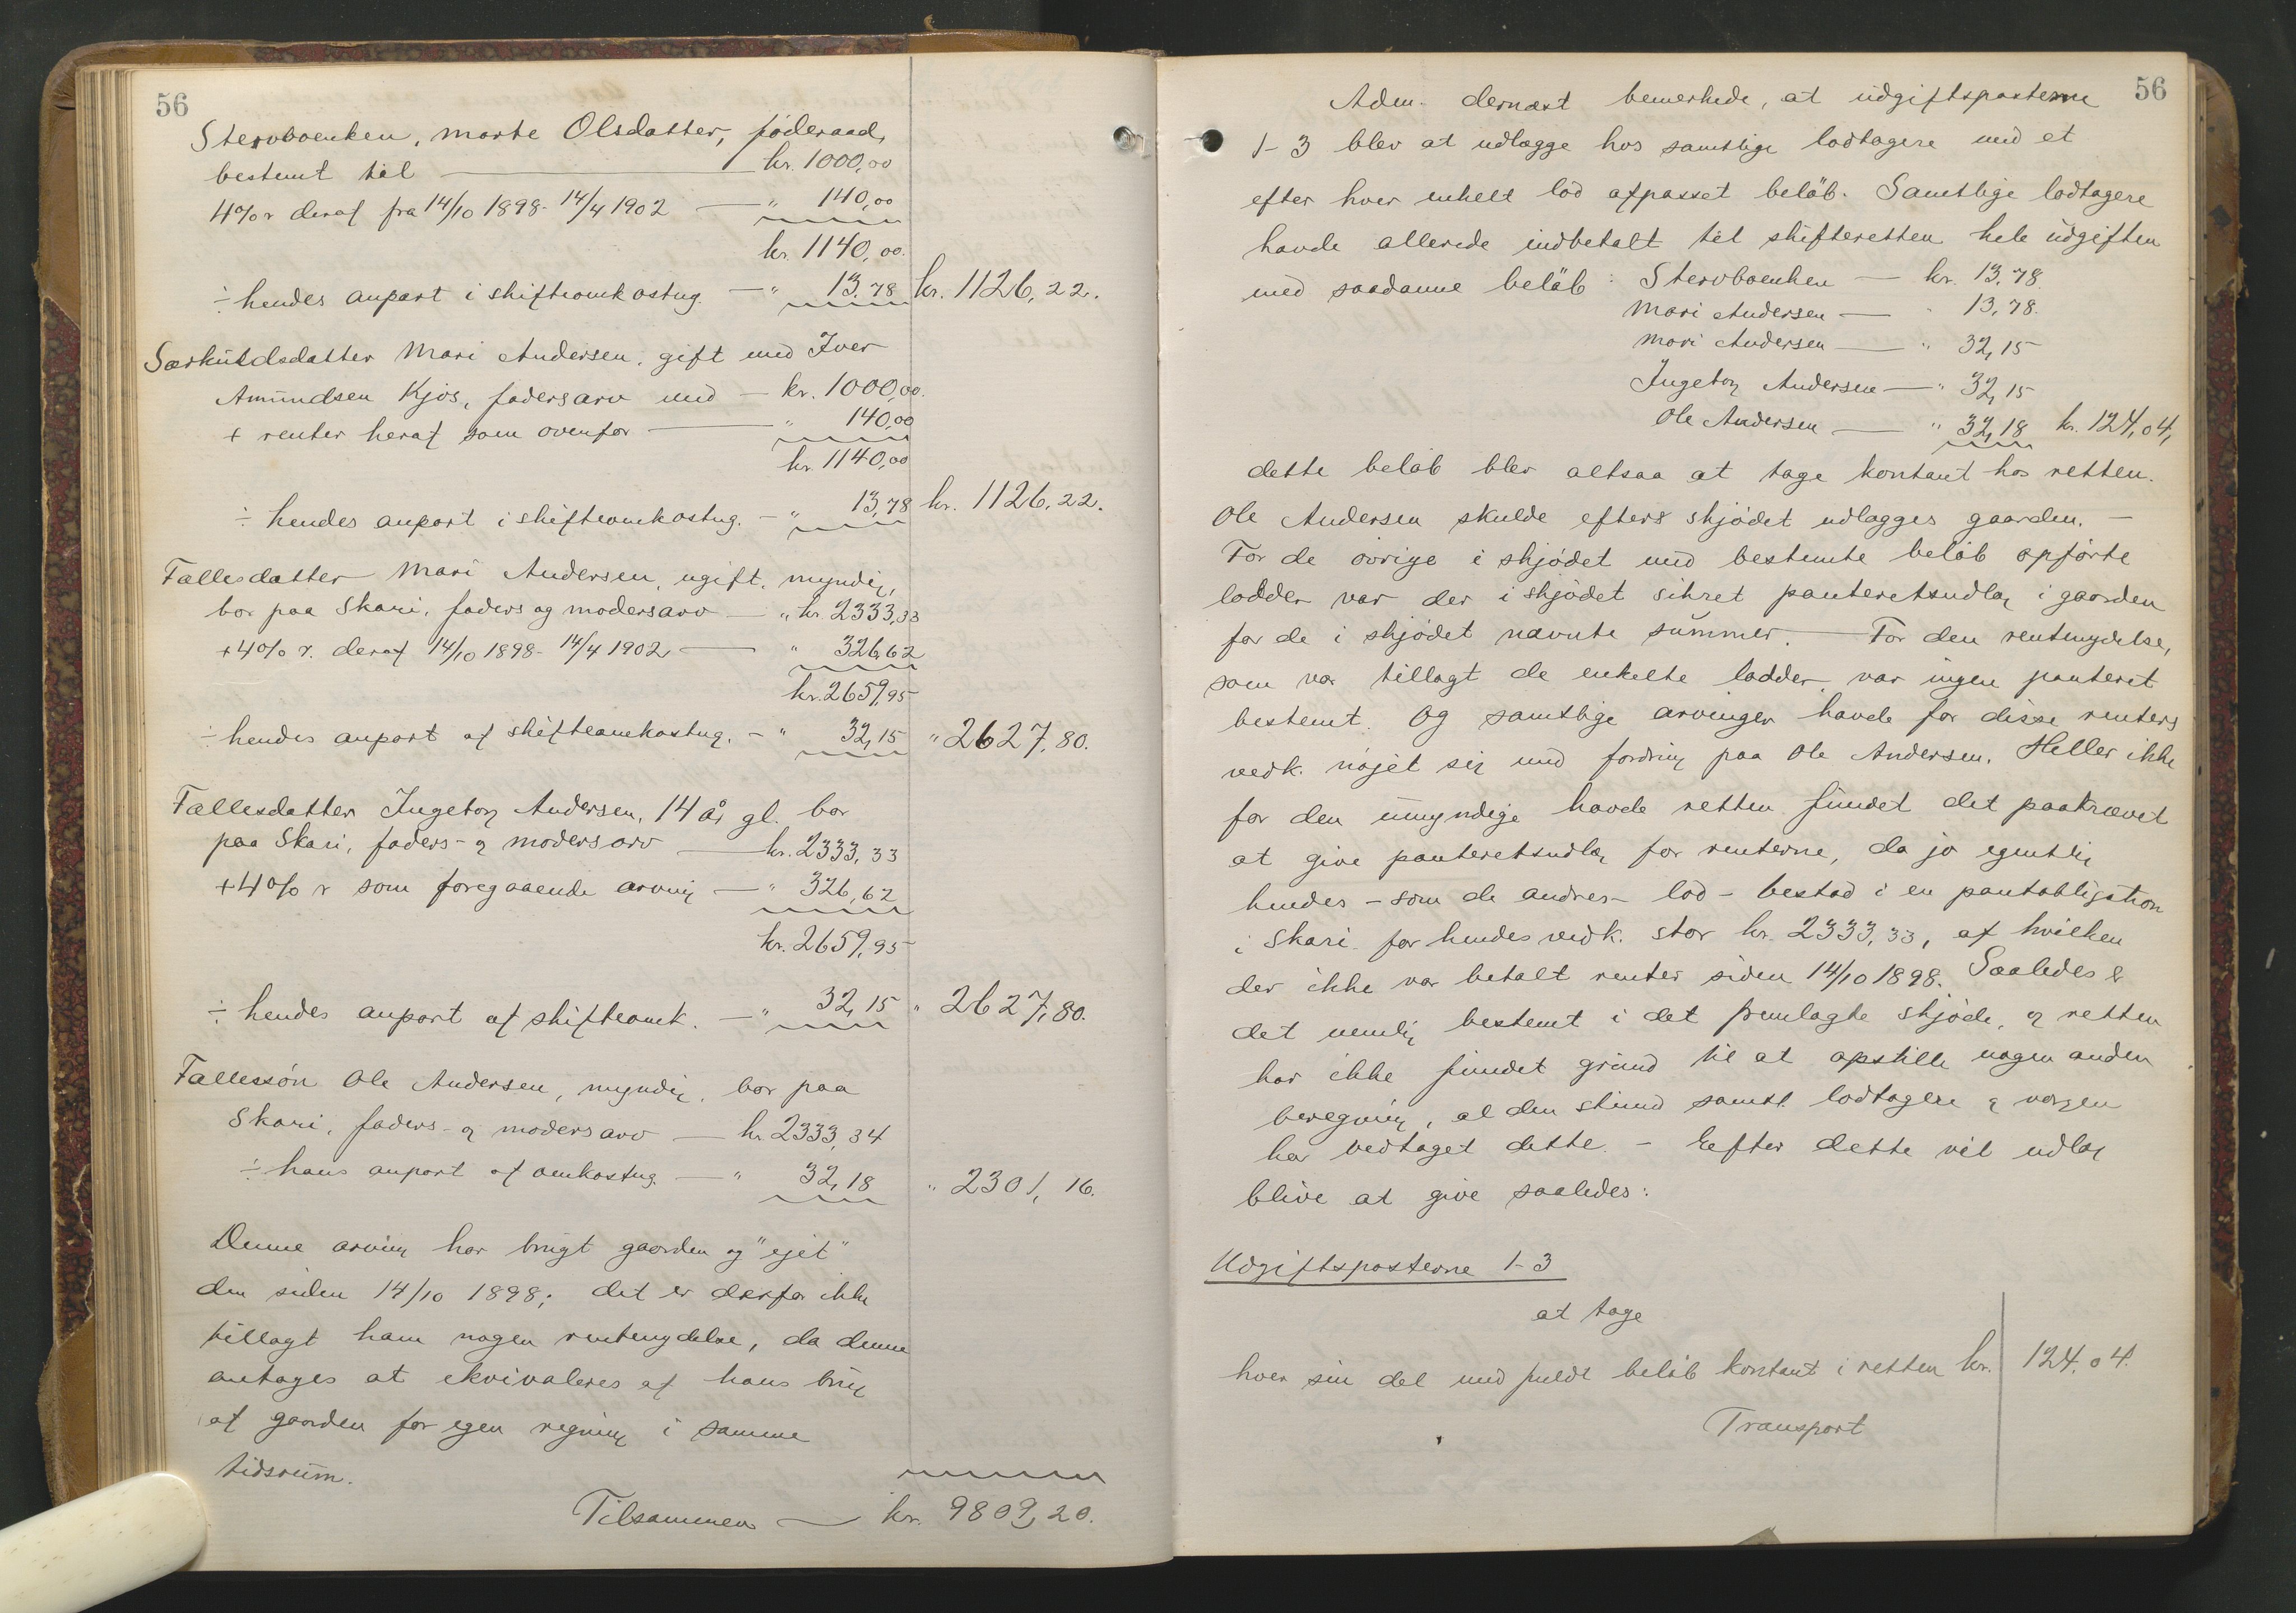 56
Stervboenken, Marte Olsdatter, föderaad,
bestemt til — kr. 1000,00
4% r deraf fra 14/10 1898 - 14/4 1902 — " 140,00
kr. 1140,00.
÷ hendes anpart i skifteomkostng. — " 13,78 kr. 1126,22.
Særkuldsdatter Mari Andersen, gift med Iver
Amundsen Kjos, fadersarv med — kr. 1000,00.
+ renter heraf som ovenfor — " 140,00
kr. 1140,00
÷ hendes anpart i skifteomkostng. — " 13,78 kr. 1126,22.
Fællesdatter Mari Andersen, ugift, myndig,
bor paa Skari, faders og modersarv — " kr. 2333,33
+4% r. deraf 14/10 1898 - 14/4 1902 — " 326,62
kr. 2659,95
÷ hendes anpart af skifteomkostng. — " 32,15 " 2627,80.
Fællesdatter Ingeborg Andersen, 14 år gl. bor
paa Skari, faders- og modersarv — kr. 2333,33
+4% r som foregaaende arving — " 326,62
kr. 2659,95
÷ hendes anpart af skifteomk. — " 32,15 " 2627,80.
Fællessön Ole Andersen, myndig, bor paa
Skari, faders- og modersarv — kr. 2333,34
÷ hans anpart af omkostng. — " 32,18 " 2301,16.
Denne arving har brugt gaarden og "ejet"
den siden 14/10 1898; det er derfor ikke
tillagt ham nogen rentenydelse, da denne
antages at ekvivaleres af hans brug
af gaarden for egen regning i samme
tidsrum.
Tilsammen — kr. 9809,20.
56
Adm. dernæst bemerkede, at udgiftsposterne
1-3 blev at udlægge hos samtlige lodtagere med et
efter hver enkelt lod afpasset belöb. Samtlige lodtagere
havde allerede indbetalt til skifteretten hele udgiften
med saadanne belöb: Stervboenken — kr. 13,78.
Mari Andersen — " 13,78.
Mari Andersen — " 32,15
Ingeborg Andersen — " 32,15
Ole Andersen — " 32,18 kr. 124,04,
dette belöb blev altsaa at tage kontant hos retten.
Ole Andersen skulde efter skjödet udlægges gaarden. —
For de övrige i skjödet med bestemte belöb opförte
lodder var der i skjödet sikret panteretsudlæg i gaarden
for de i skjödet nævnte summer. — For den rentenydelse,
som var tillagt de enkelte lodder, var ingen panteret
bestemt. Og samtlige arvinger havde for disse renters
vedk. nöjet sig med fordring paa Ole Andersen. Heller ikke
for den umyndige havde retten fundet det paakrævet
at give panteretsudlæg for renterne, da jo egentlig
hendes - som de andres - lod - bestod i en pantobligation
i Skari for hendes vedk. stor kr. 2333,33, af hvilken
der ikke var betalt renter siden 14/10 1898. Saaledes er
det nemlig bestemt i det fremlagte skjöde, og retten
har ikke fundet grund til at opstille nogen anden
beregning, al den stund samtl. lodtagere og vergen
har vedtaget dette. - Efter dette vil udlæg
blive at give saaledes:
Udgiftsposterne 1-3
at tage
hver sin del med fuldt belöb kontant i retten kr. 124,04.
Transport